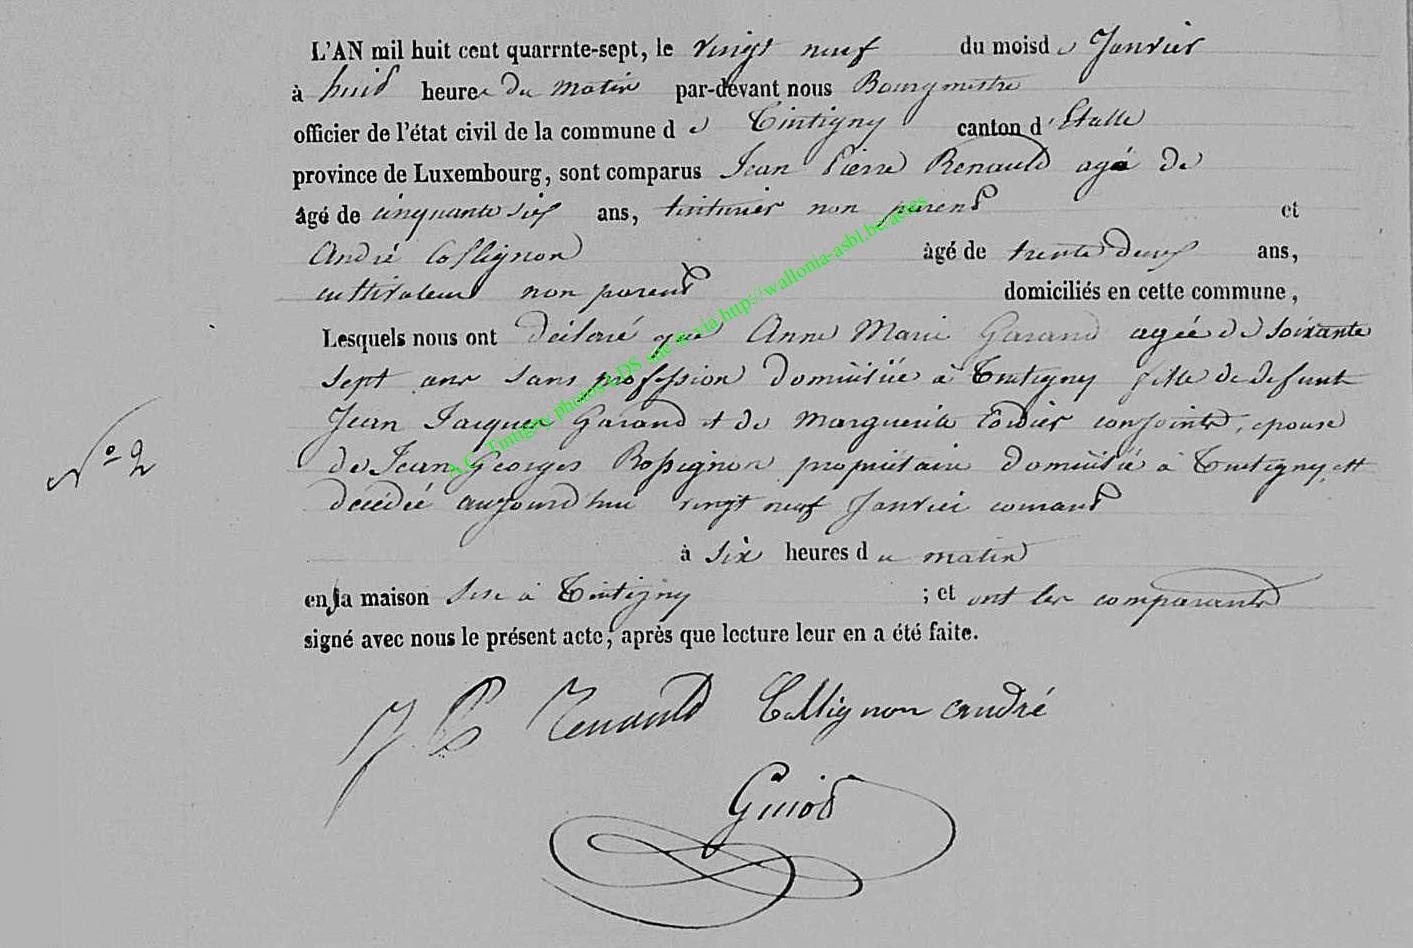 L'AN mil huit cent quarrnte-sept, le vingt neuf du moisd e Janvier
à huit heures Du matin par-devant nous Bourgmestre
officier de l'état civil de la commune d e Tintigny canton d'Etalle
province de Luxembourg, sont comparus Jean Pierre Renauld agé de
âgé de cinquante six ans, teinturier non parent et
André Collignon àgé de trente deux ans,
cultivateur non parent domiciliés en cette commune,
Lesquels nous ont déclaré que Anne Marie Garand agée de soixante
sept ans sans profession domiciliée à Tintigny fille de defunt
Jean Jacques Garand et de Marguerite conjoints, epouse
de Jean Georges Rossignon propriétaire domicilié à Tintigny, est
Nº 2
décédée aujourd'hui vingt neuf Janvier courant
à six heures d u matin
en la maison sise à Tintigny ; et ont les comparants
signé avec nous le présent acte, après que lecture leur en a été faite.
J P Renauld Collignon andré
Guiot
A.C. Tintigny photos LDS site via http://wallonia-asbl.be/actes